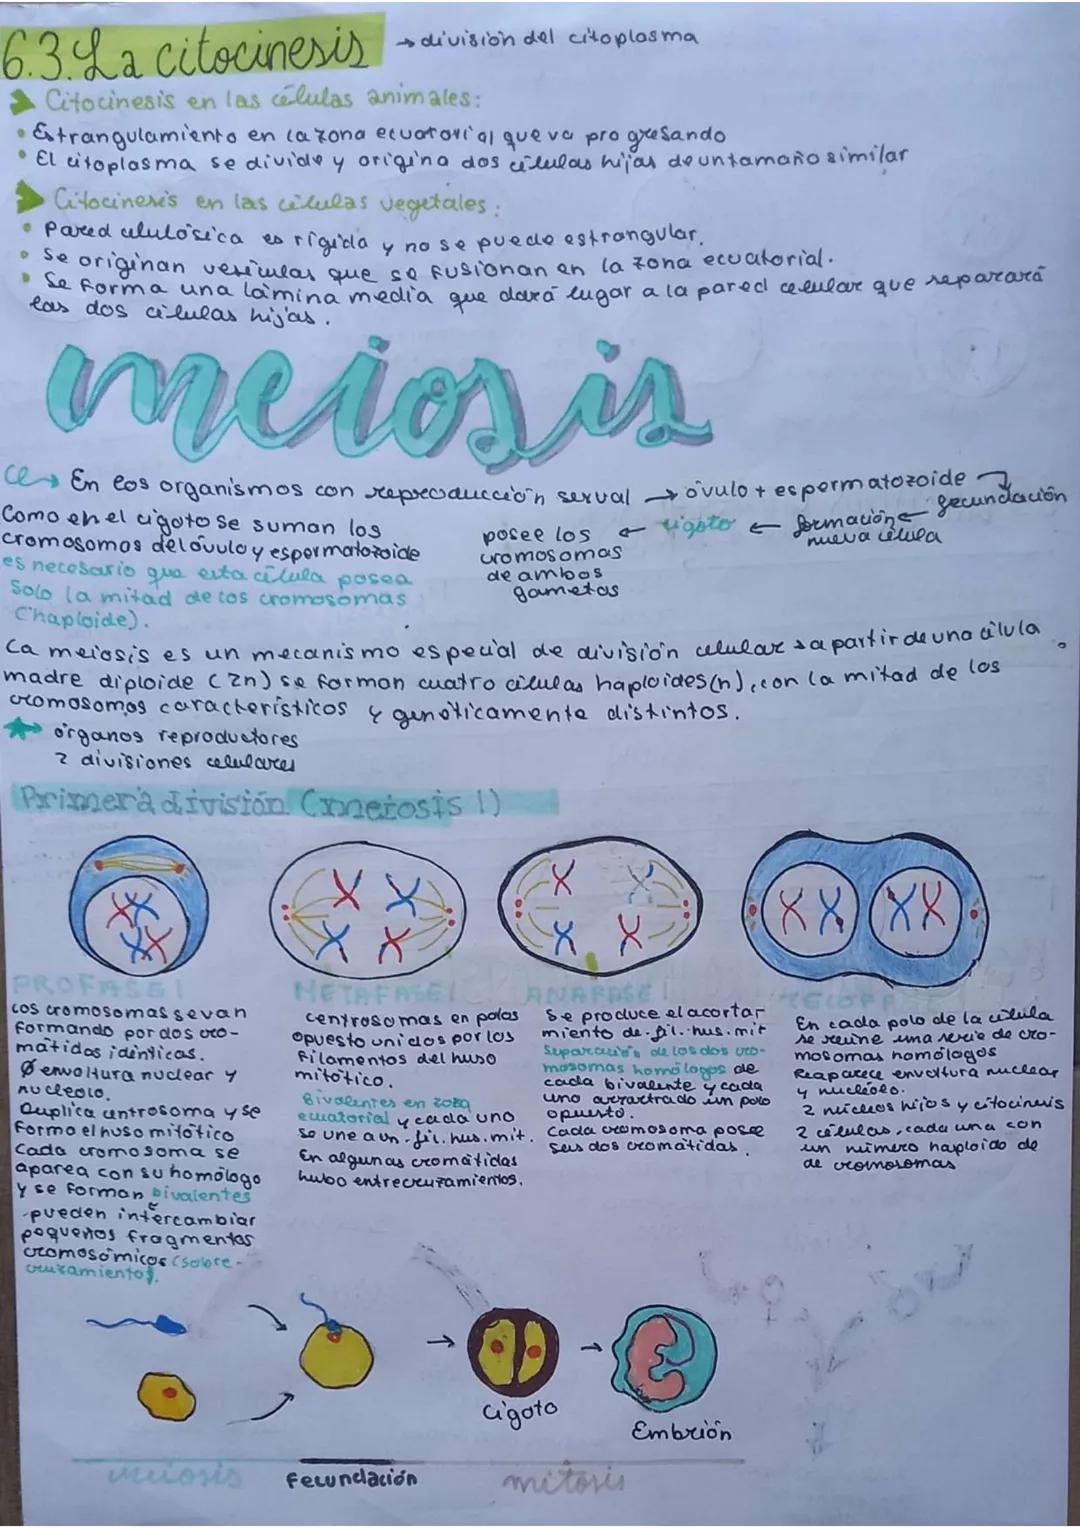 6.3. La citocinesis → división del citoplasma
Citocinesis en las células animales:
• Estrangulamiento en la zona ecuatorial que va progresando
• El citoplasma se divide y origina dos células hijas de un tamaño similar
Citocinesis en las células vegetales:
• Pared celulósica es rígida y no se puede estrangular.
• Se originan vesículas que se fusionan en la zona ecuatorial.
• Se forma una lámina media que dará lugar a la pared celular que separará
las dos células hijas.
meiosis
→ En los organismos con reproducción sexual → óvulo + espermatozoide
fecundación
Como en el cigoto se suman los
cromosomos del óvulo y espermatozoide
es necesario que esta célula posea
Solo la mitad de los cromosomas
(haploide).
posee los ← cigoto ← formación ←
cromosomas nueva célula
de ambos
gametos
La meiosis es un mecanismo especial de división celular a partir de una célula
madre diploide (2n) se forman cuatro células haploides (n), con la mitad de los
cromosomas característicos y genéticamente distintos.
órganos reproductores
2 divisiones celulares
Primera división (meiosis I)
PROFASE I
Los cromosomas se van
formando por dos cro-
mátidas idénticas.
Ø envoltura nuclear y
nucleolo.
Duplica centrosoma y se
forma el huso mitótico
Cada cromosoma se
aparea con su homólogo
y se forman bivalentes
pueden intercambiar
pequeños fragmentos
cromosómicos (sobre-
cruzamiento).
METAFASE I
Centrosomas en polos
opuesto unidos por los
filamentos del huso
mitótico.
Bivalentes en zona
ecuatorial y cada uno
se une a un. fil. hus. mit.
En algunas cromátidas
hubo entrecruzamientos.
ANAFASE I
Se produce el acortar
miento de fil. hus. mit
Separación de los dos cro-
mosomas homólogos de
cada bivalente y cada
uno arrastrado un polo
opuesto.
Cada cromosoma posee
sus dos cromátidas.
En cada polo de la célula
se reúne una serie de cro-
mosomas homólogos
Reaparece envoltura nuclear
y nucléolo.
2 núcleos hijos y citocinesis
2 células, cada una con
un número haploido de
de cromosomas
Cigoto
Embrión
meiosis
Fecundación
mitosis